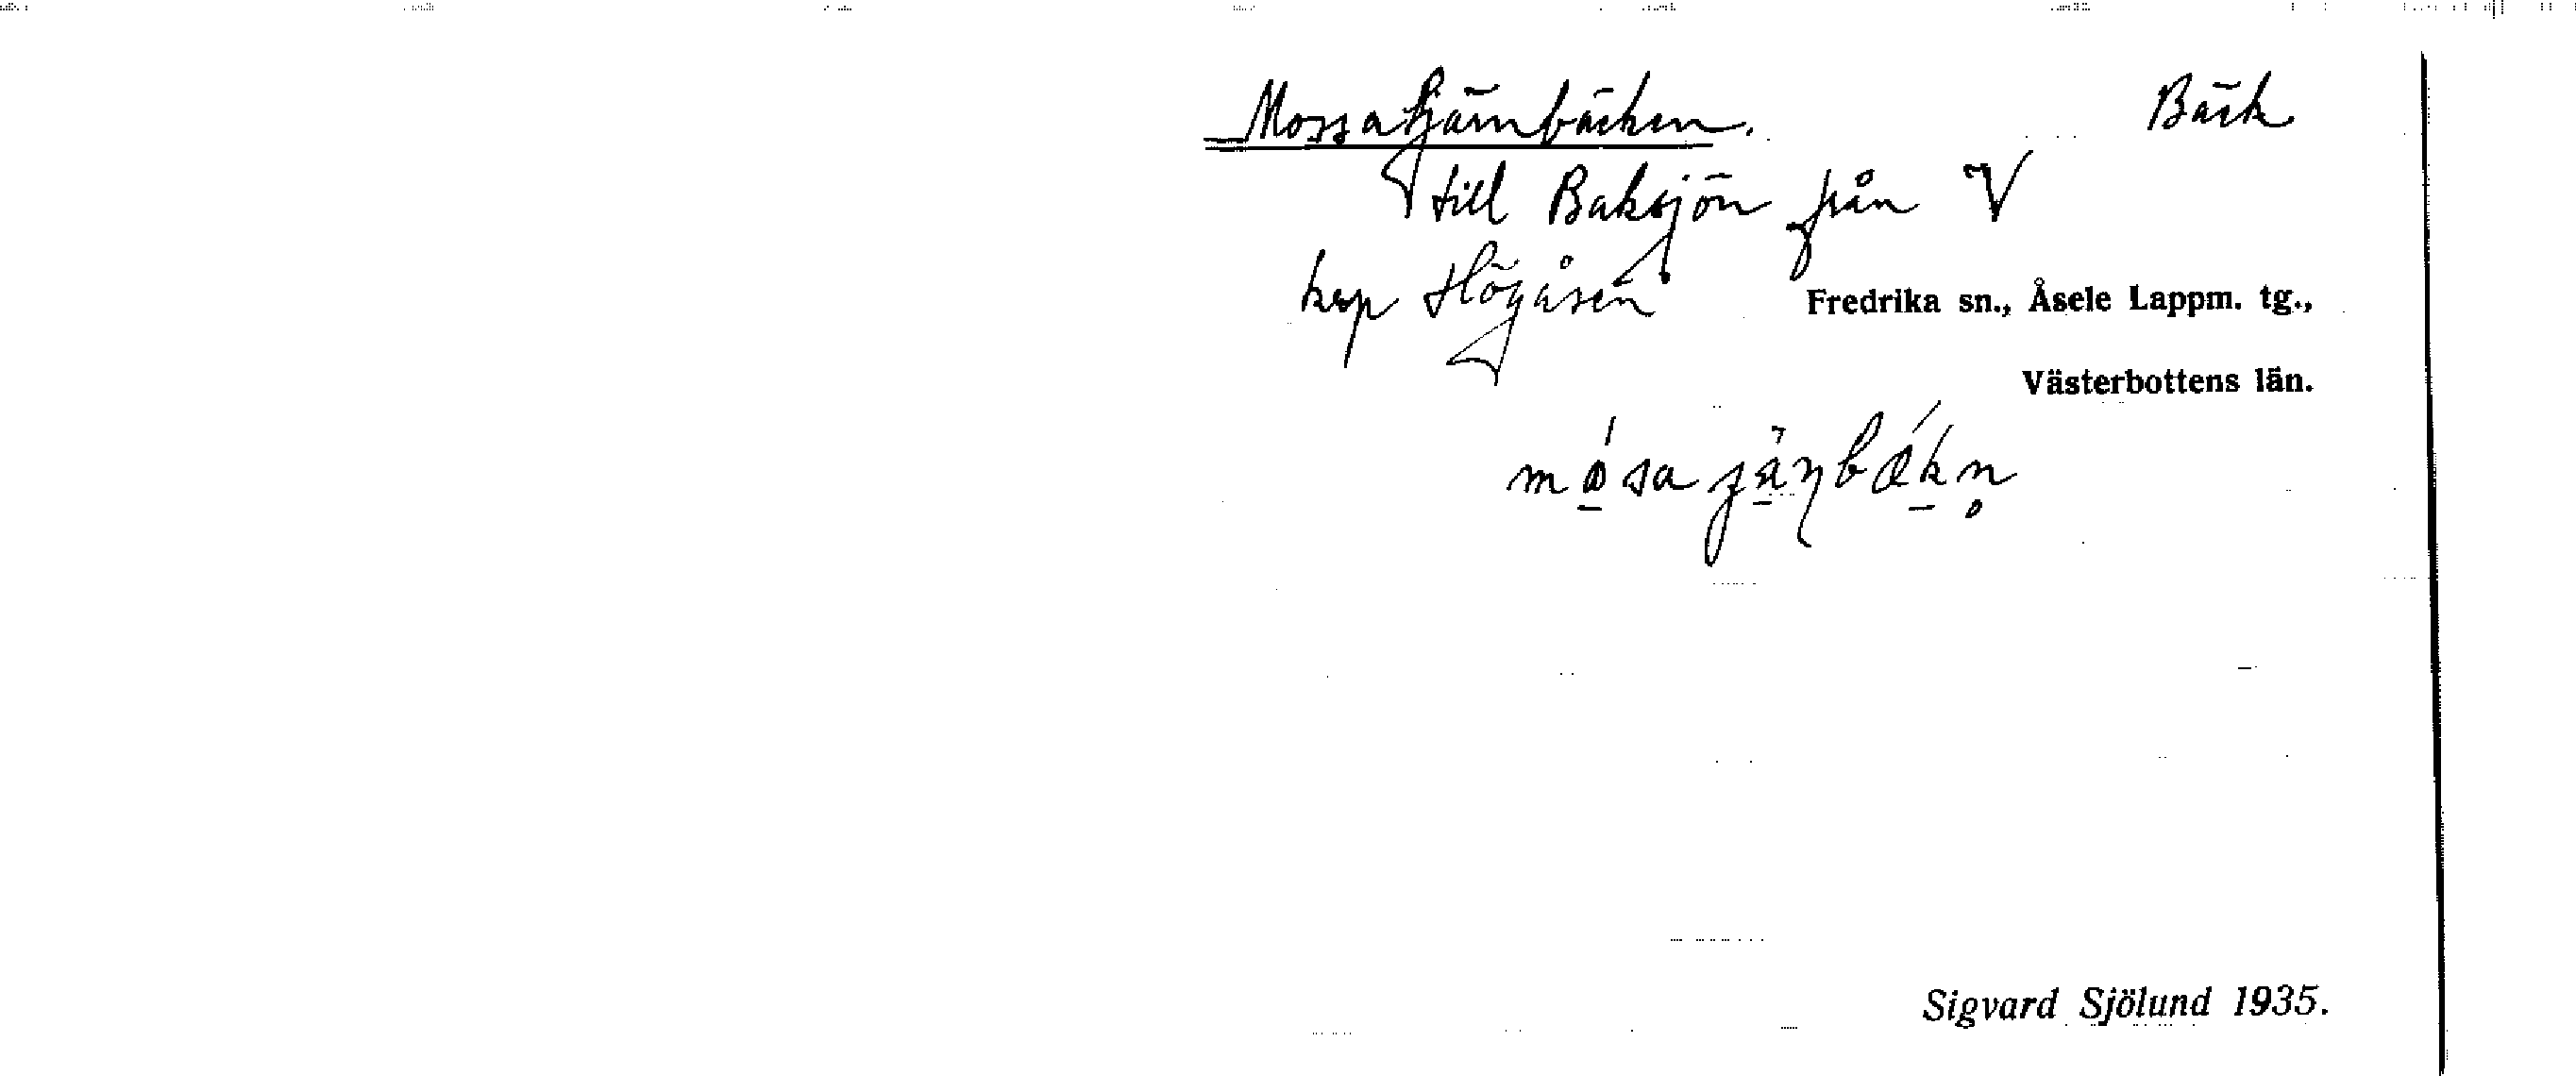 Mossatjärnbäcken. Bäck
till Baksjön från V
kap Högåsen
Fredrika sn., Åsele Lappm. tg.,
Västerbottens län.
Sigvard Sjölund 1935.